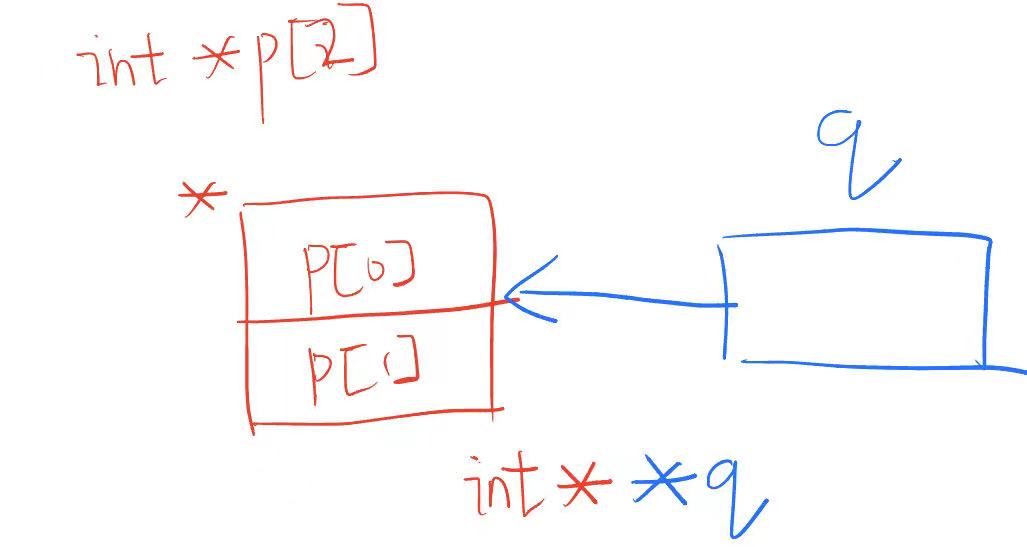 int *p[2]
q
*
p[0]
p[1]
int * *q